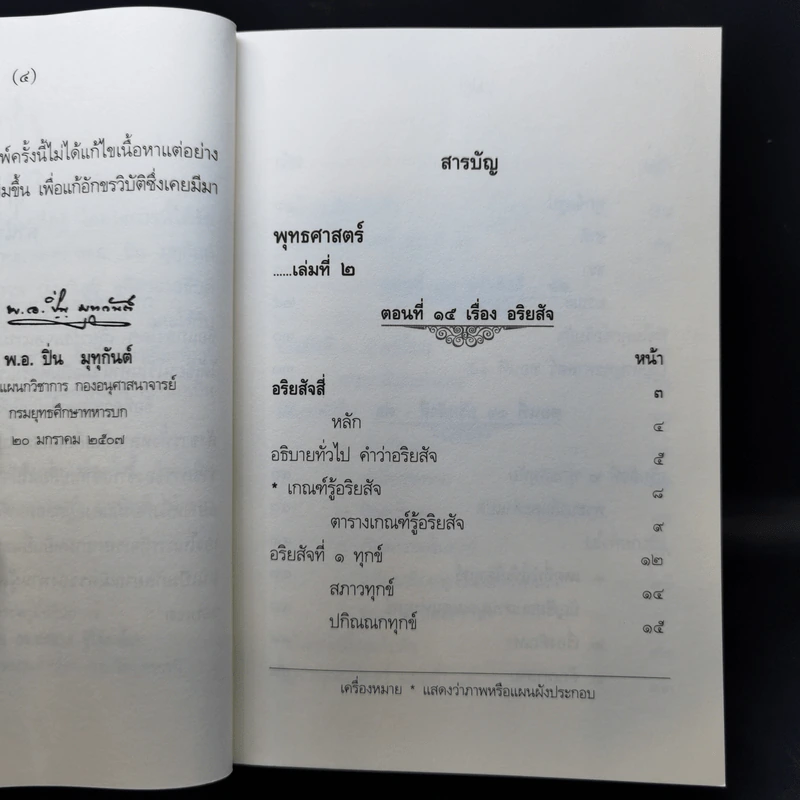 (๔)
พ์ครั้งนี้ไม่ได้แก้ไขเนื้อหาแต่อย่าง
มขึ้น เพื่อแก้อักขรวิบัติซึ่งเคยมีมา
พ.อ. ปิ่น มุทุกันต์
พ.อ. ปิ่น มุทุกันต์
แผนกวิชาการ กองอนุศาสนาจารย์
กรมยุทธศึกษาทหารบก
๒๐ มกราคม ๒๕๐๗
สารบัญ
พุทธศาสตร์
......เล่มที่ ๒
ตอนที่ ๑๕ เรื่อง อริยสัจ
หน้า
อริยสัจสี่ ๓
หลัก ๔
อธิบายทั่วไป คำว่าอริยสัจ ๕
* เกณฑ์รู้อริยสัจ ๘
ตารางเกณฑ์รู้อริยสัจ ๙
อริยสัจที่ ๑ ทุกข์ ๑๒
สภาวทุกข์ ๑๔
ปกิณณกทุกข์ ๑๕
เครื่องหมาย * แสดงว่าภาพหรือแผนผังประกอบ